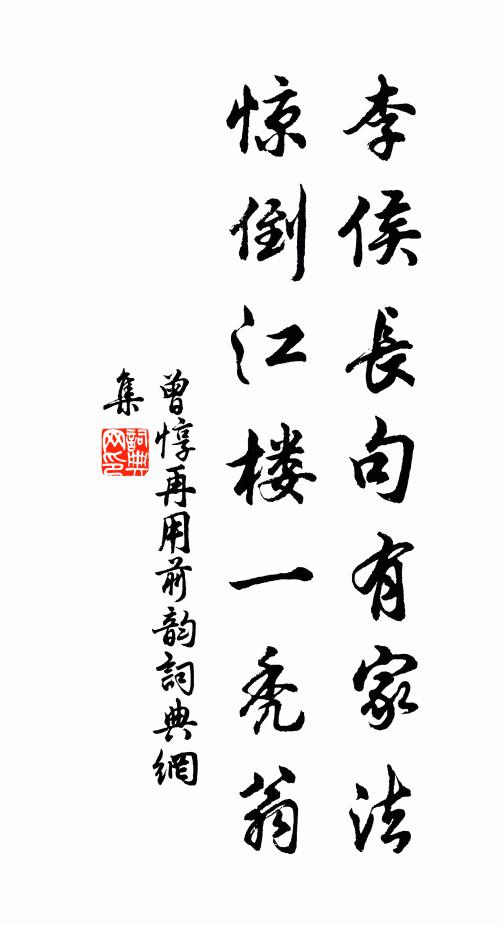 李侯長句有家法
惊倒江楼一秃翁
曾惇再用前韵詞典網
集
詞典
网印